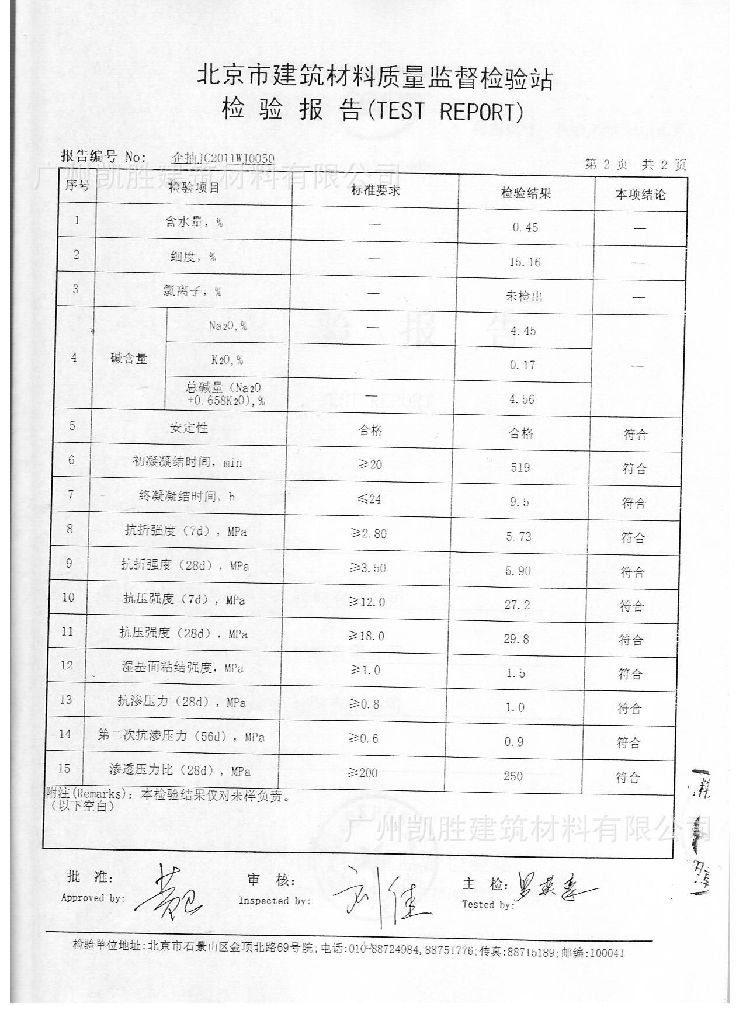 北京市建筑材料质量监督检验站
检 验 报 告(TEST REPORT)
报告编号 No: 企抽JC2011WJ0050
第 2 页 共 2 页
广州凯胜建筑材料有限公司
序号 检验项目 标准要求 检验结果 本项结论
1 含水量,% — 0.45 —
2 细度,% — 15.16 —
3 氯离子,% — 未检出 —
4 碱含量 Na2O,% — 4.45 —
K2O,% 0.17
总碱量(Na2O
+0.658K2O),% — 4.56
5 安定性 合格 合格 符合
6 初凝凝结时间,min ≥20 519 符合
7 终凝凝结时间,h ≤24 9.5 符合
8 抗折强度(7d),MPa ≥2.80 5.73 符合
9 抗折强度(28d),MPa ≥3.50 5.90 符合
10 抗压强度(7d),MPa ≥12.0 27.2 符合
11 抗压强度(28d),MPa ≥18.0 29.8 符合
12 湿基面粘结强度,MPa ≥1.0 1.5 符合
13 抗渗压力(28d),MPa ≥0.8 1.0 符合
14 第二次抗渗压力(56d),MPa ≥0.6 0.9 符合
15 渗透压力比(28d),MPa ≥200 250 符合
附注(Remarks):本检验结果仅对来样负责。
(以下空白)
广州凯胜建筑材料有限公司
批 准: 审 核: 刘佳 主 检:
Approved by: Inspected by: Tested by:
检验单位地址:北京市石景山区金顶北路69号院,电话:010-88724084,88751776;传真:88715189;邮编:100041